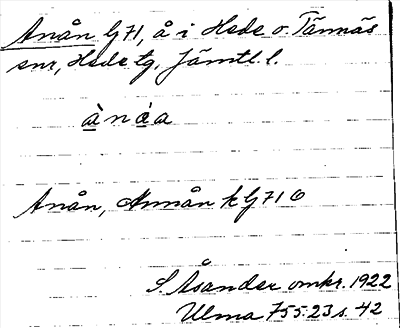 Anån G71, å i Hede o. Tännäs
snr, Hede tg, Jämtl. l.
ànáa
Anån, Annån k G71 O
S Åsander omkr. 1922
Ulma 755:23 s. 42